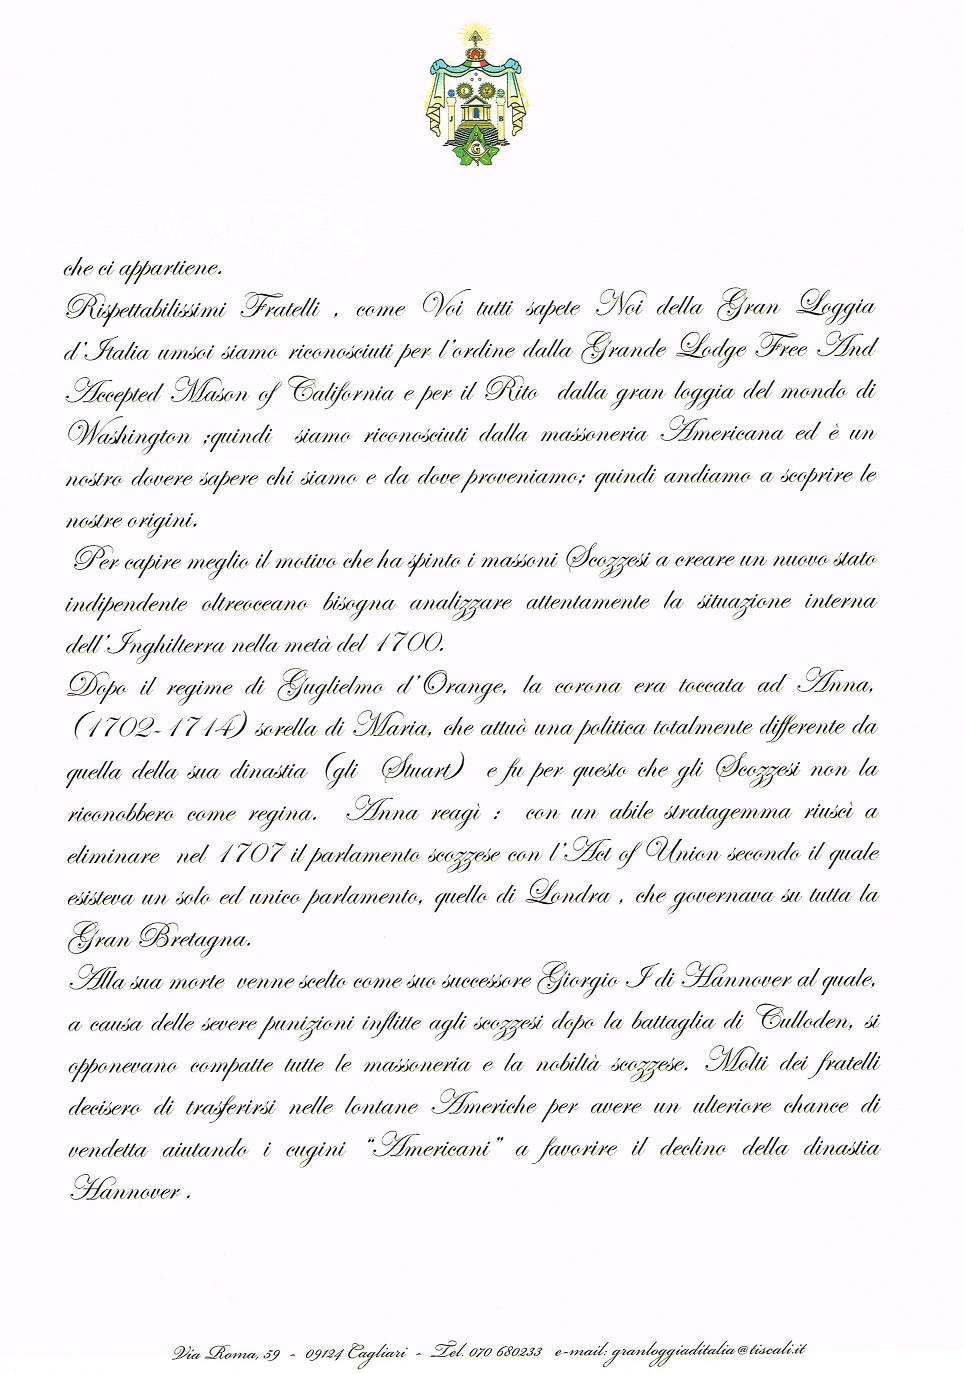 J B
G
che ci appartiene.
Rispettabilissimi Fratelli , come Voi tutti sapete Noi della Gran Loggia
d'Italia umsoi siamo riconosciuti per l'ordine dalla Grande Lodge Free And
Accepted Mason of California e per il Rito dalla gran loggia del mondo di
Washington ;quindi siamo riconosciuti dalla massoneria Americana ed è un
nostro dovere sapere chi siamo e da dove proveniamo; quindi andiamo a scoprire le
nostre origini.
Per capire meglio il motivo che ha spinto i massoni Scozzesi a creare un nuovo stato
indipendente oltreoceano bisogna analizzare attentamente la situazione interna
dell'Inghilterra nella metà del 1700.
Dopo il regime di Guglielmo d'Orange, la corona era toccata ad Anna,
(1702-1714) sorella di Maria, che attuò una politica totalmente differente da
quella della sua dinastia (gli Stuart) e fu per questo che gli Scozzesi non la
riconobbero come regina. Anna reagì : con un abile stratagemma riuscì a
eliminare nel 1707 il parlamento scozzese con l'Act of Union secondo il quale
esisteva un solo ed unico parlamento, quello di Londra , che governava su tutta la
Gran Bretagna.
Alla sua morte venne scelto come suo successore Giorgio I di Hannover al quale,
a causa delle severe punizioni inflitte agli scozzesi dopo la battaglia di Culloden, si
opponevano compatte tutte le massoneria e la nobiltà scozzese. Molti dei fratelli
decisero di trasferirsi nelle lontane Americhe per avere un ulteriore chance di
vendetta aiutando i cugini "Americani" a favorire il declino della dinastia
Hannover .
Via Roma, 59 - 09124 Cagliari - Tel. 070 680233 e-mail: granloggiaditalia@tiscali.it